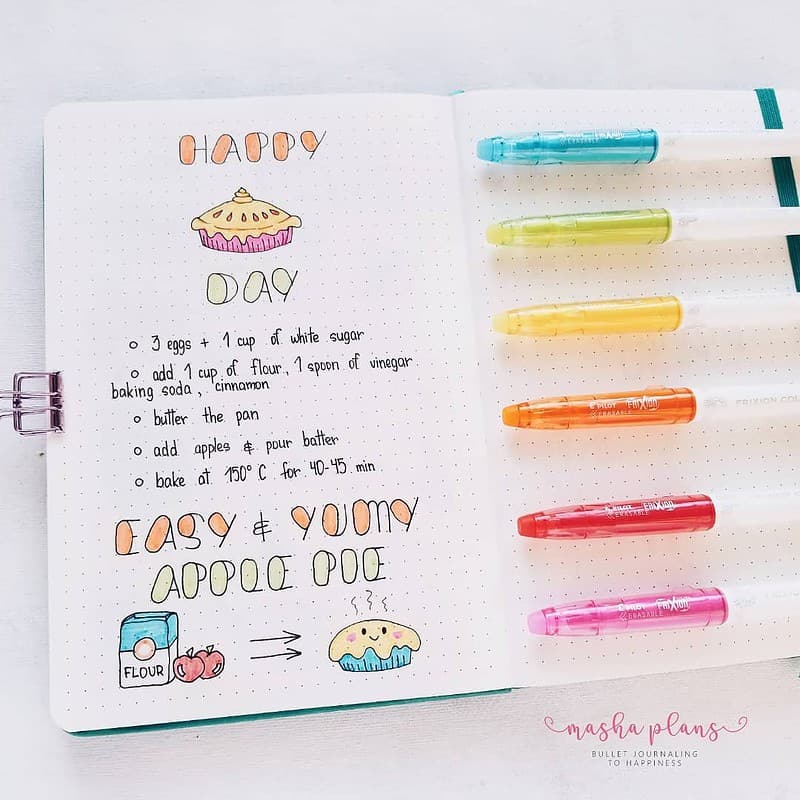 HAPPY
DAY
3 eggs + 1 cup of white sugar
add 1 cup of flour, 1 spoon of vinegar
baking soda, cinnamon
butter the pan
add apples & pour batter
bake at 150° C for 40-45 min
EASY & YUMMY
APPLE PIE
FLOUR
FRIXION
PILOT FRIXION
ERASABLE
FRIXION COL
PILOT FRIXION
ERASABLE
PILOT FRIXION
ERASABLE
masha plans
BULLET JOURNALING
TO HAPPINESS